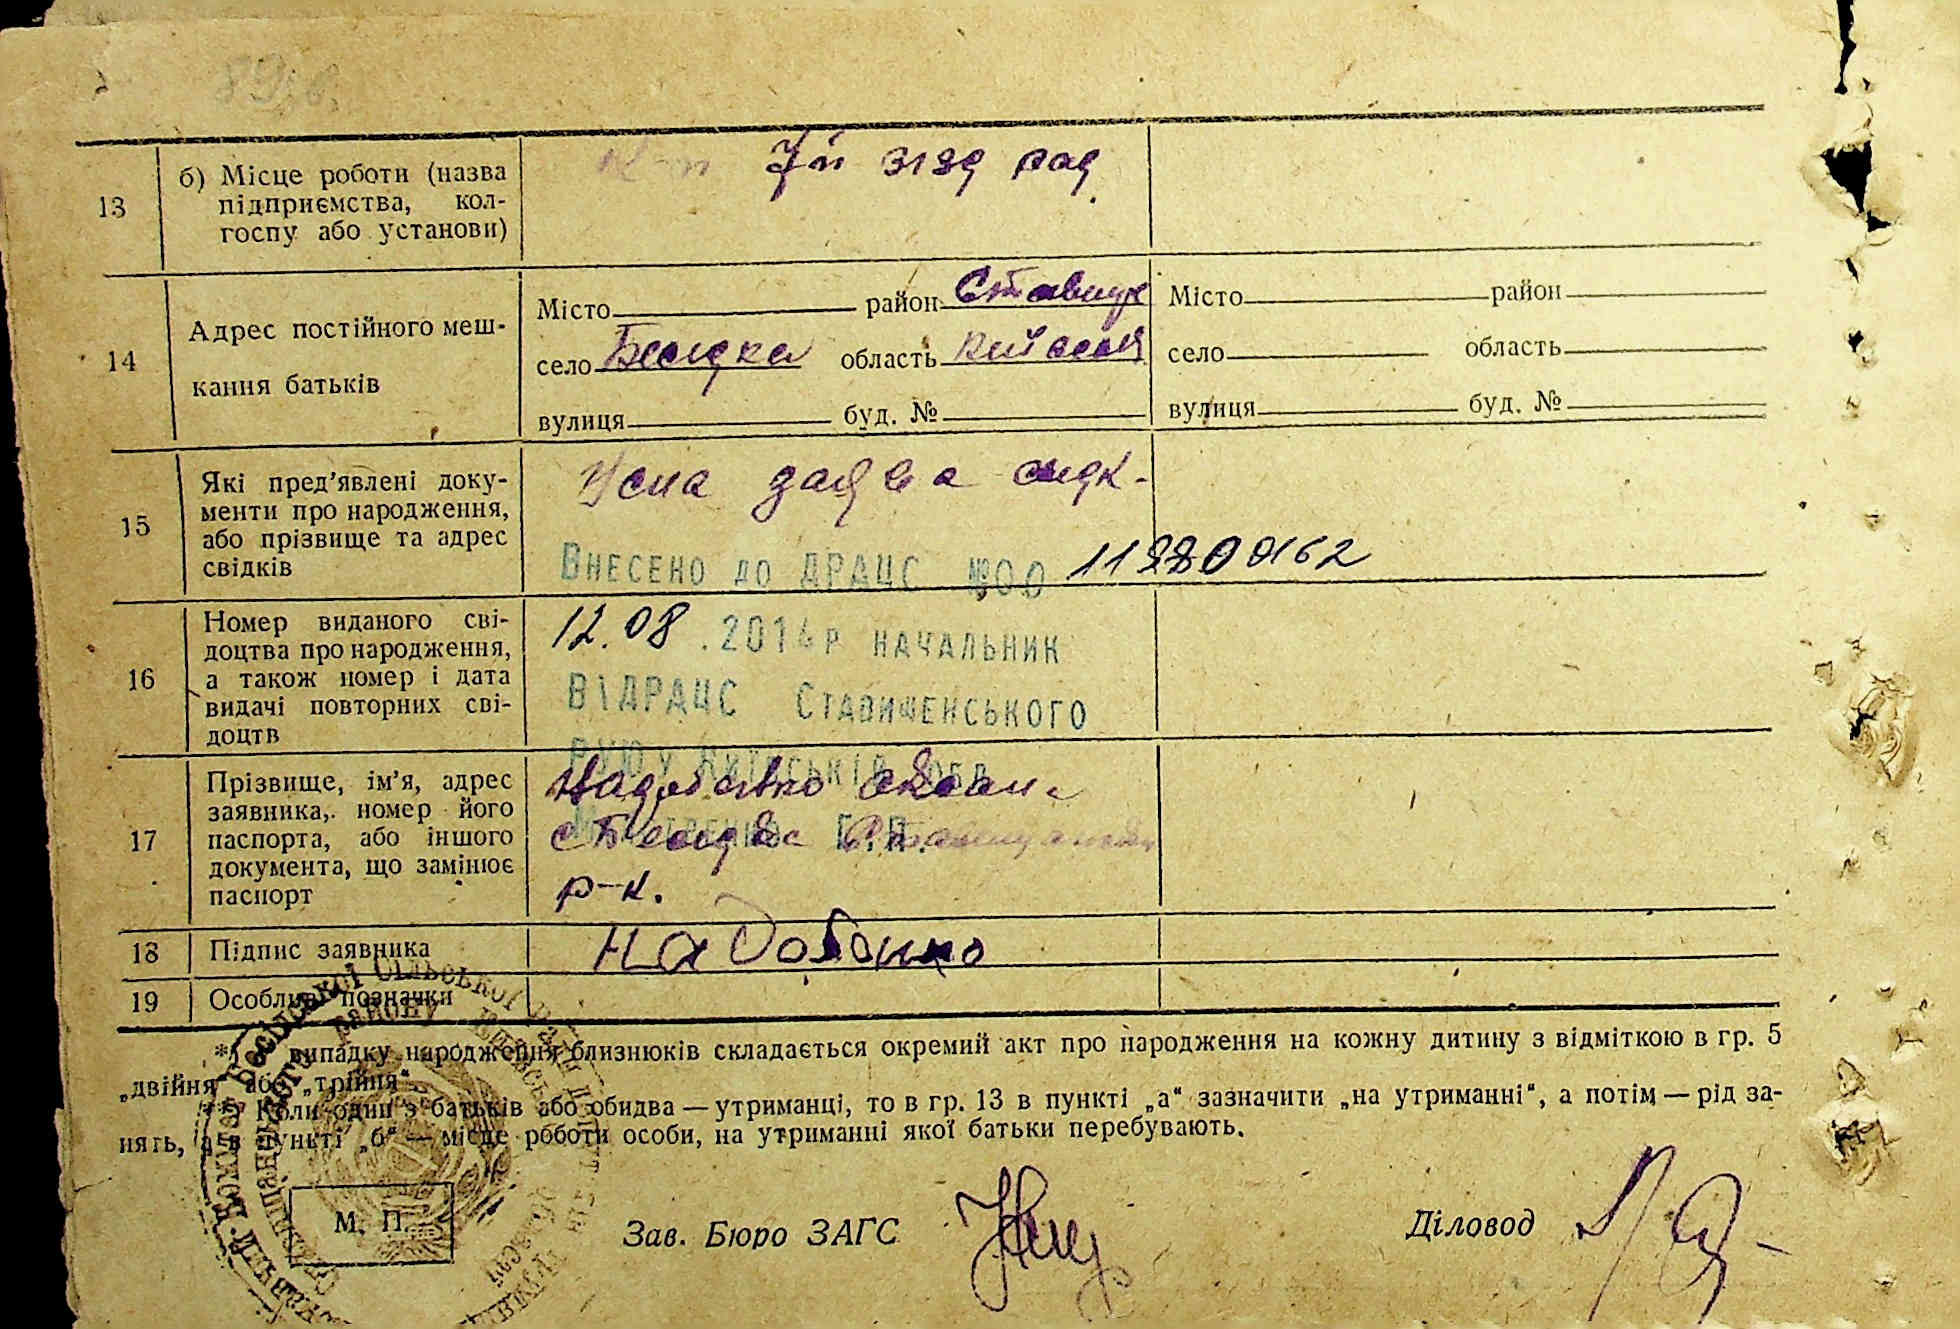 89
13
б) Місце роботи (назва
підприємства, кол-
госпу або установи)
7й зізд рад
14
Адрес постійного меш-
кання батьків
Місто район Ставищ
село Бесидка область Київська
вулиця буд. №
Місто район
село область
вулиця буд. №
15
Які пред’явлені доку-
менти про народження,
або прізвище та адрес
свідків
Усна заява
Внесено до ДРАЦС №00
12.08.2014р начальник
ВІДРАЦС Ставищенського
РУЮ у Київській обл
Г.П.
16
Номер виданого сві-
доцтва про народження,
а також номер і дата
видачі повторних сві-
доцтв
17
Прізвище, ім’я, адрес
заявника, номер його
паспорта, або іншого
документа, що замінює
паспорт
Надобенко
с Бесидка
р-н.
18
Підпис заявника
Надобенко
19
Особливі позначки
*) випадку народження близнюків складається окремий акт про народження на кожну дитину з відміткою в гр. 5
„двійня“ або „трійня“.
**) Коли один з батьків або обидва — утриманці, то в гр. 13 в пункті „а“ зазначити „на утриманні“, а потім — рід за-
нять, а в пункті „б“ — місце роботи особи, на утриманні якої батьки перебувають.
М. П.
Зав. Бюро ЗАГС
Діловод